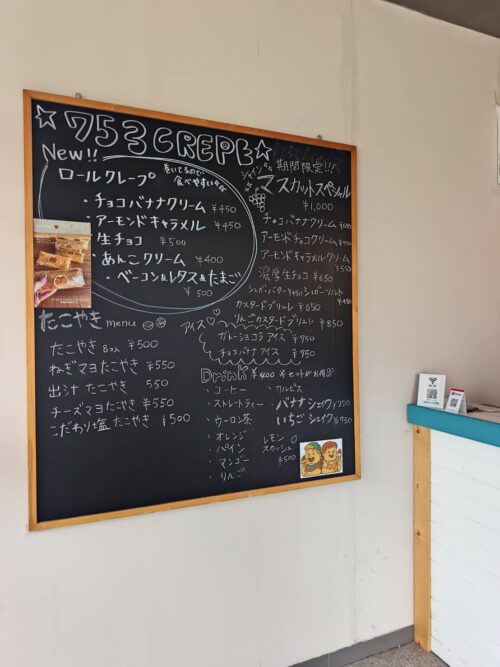 ☆753CREPE☆
New!!
ロールクレープ
巻いてるので
食べやすい
・チョコバナナクリーム ¥450
・アーモンドキャラメル ¥450
・生チョコ ¥500
・あんこクリーム ¥400
・ベーコン&レタス&たまご
¥500
期間限定!!!
シャイン
マスカットスペシャル
¥1,000
チョコバナナクリーム
アーモンドチョコクリーム ¥550
アーモンドキャラメルクリーム
¥550
濃厚生チョコ ¥650
シュガーバター ¥450 シュガーソルト
¥450
カスタードブリュレ ¥650
りんごカスタードブリュレ ¥850
アイス♡♡
ガトーショコラアイス ¥750
チョコバナナアイス ¥750
たこやき menu
たこやき 8コ入 ¥500
ねぎマヨたこやき ¥550
出汁たこやき 550
チーズマヨたこやき ¥550
こだわり塩たこやき ¥500
Drink ¥400 *セットがお得
・コーヒー
・ストレートティー
・ウーロン茶
・オレンジ
・パイン
・マンゴー
・りんご
・カルピス
・バナナシェイク ¥750
・いちごシェイク ¥750
レモン
スカッシュ
¥500